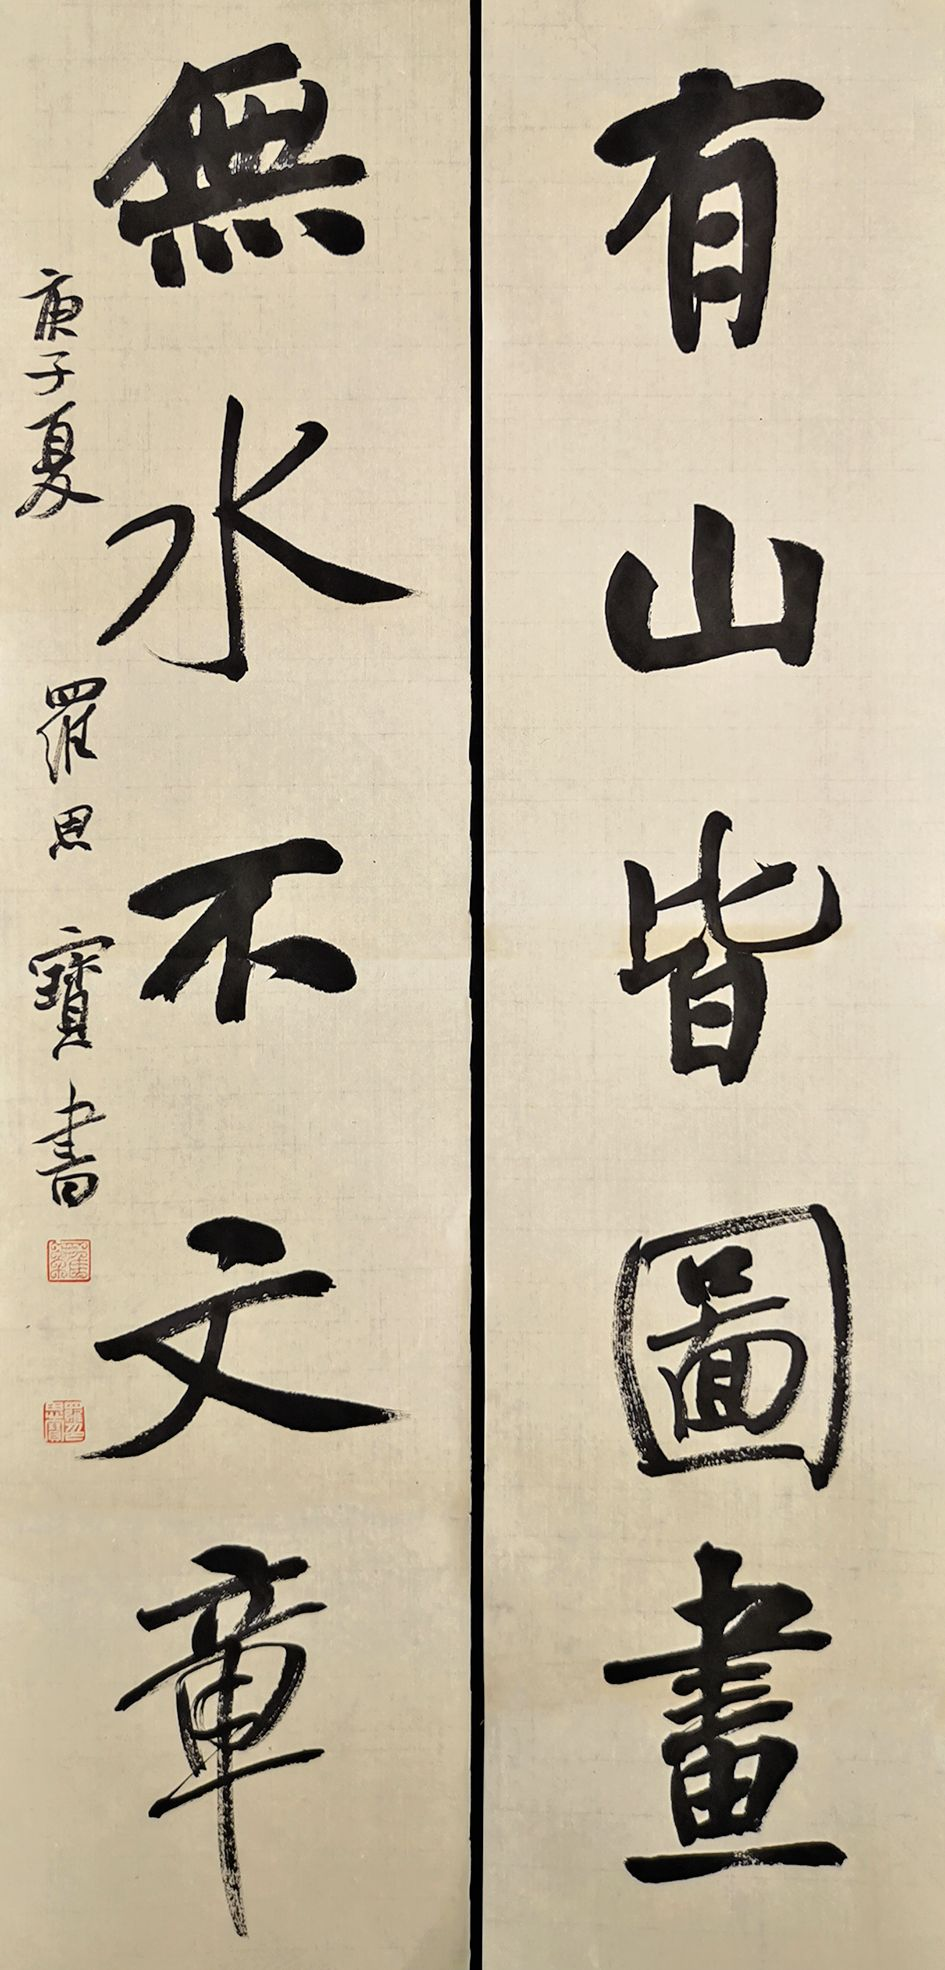 有山皆圖畫
無水不文章
庚子夏 羅思寶書